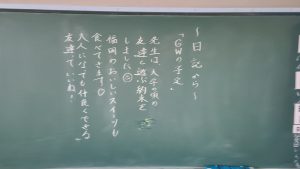 ～日記から～
「GWの予定」
先生は、大学の頃の
友達と遊ぶ約束を
しました☺
福岡のおいしいスイーツも
食べてきます☺
大人になっても仲良くできる
友達っていいね!